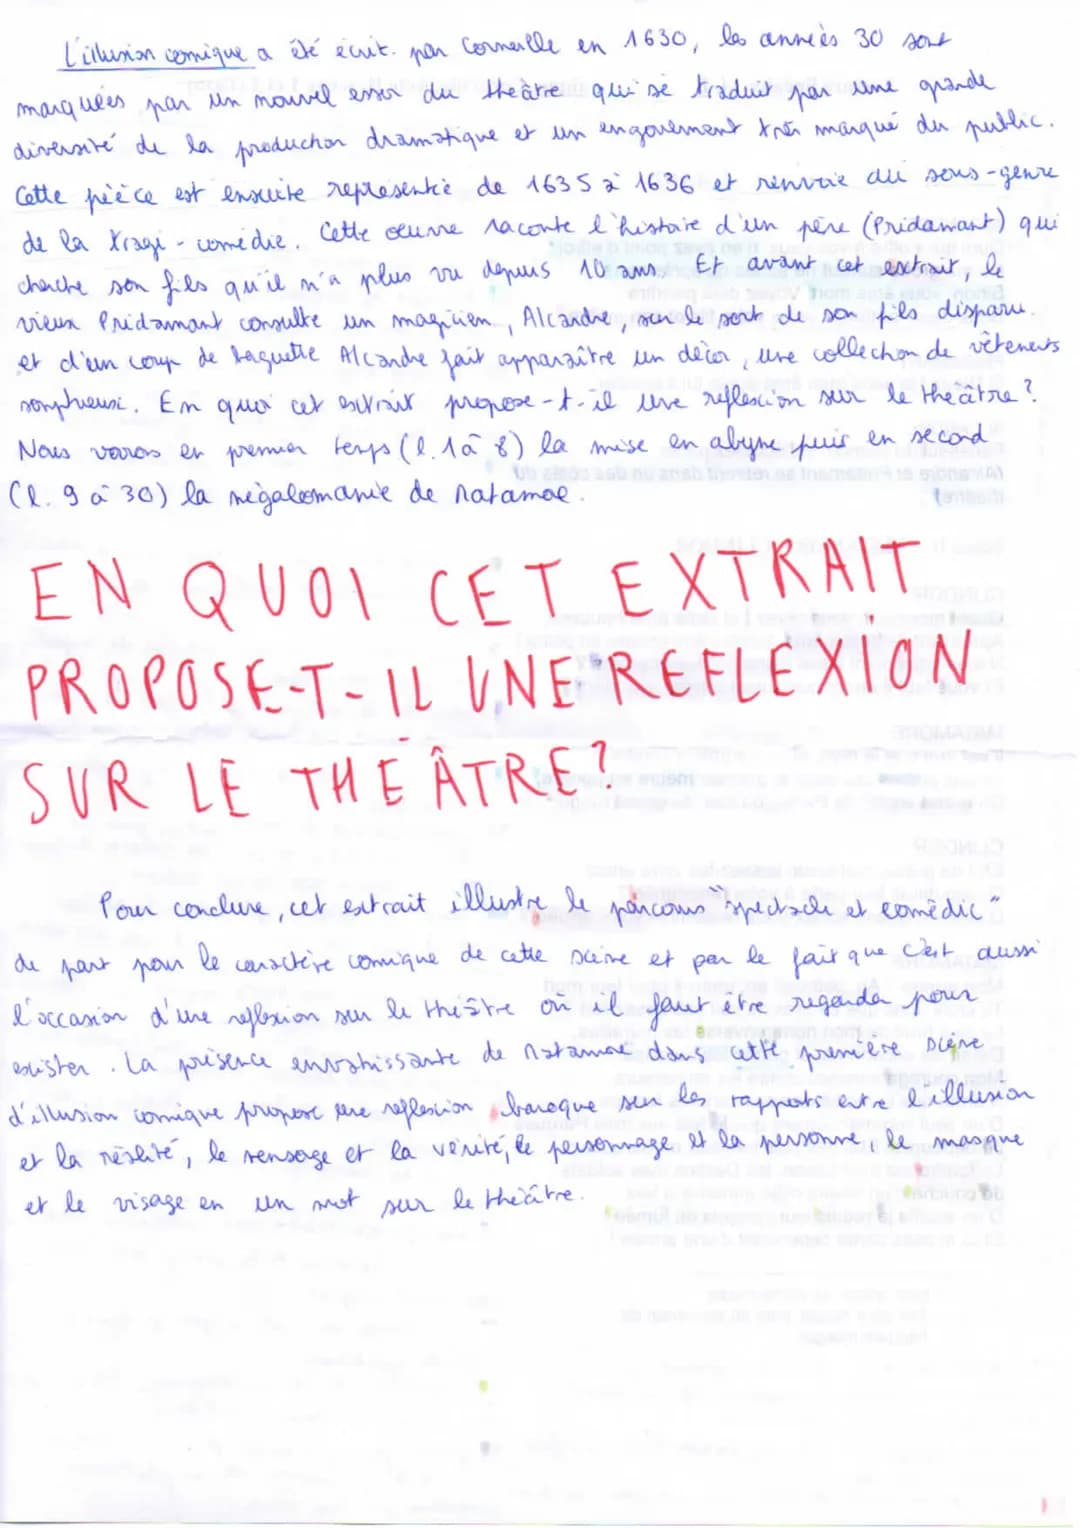 L'illusion comique a été écrit. par Corneille en 1630, les années 30 sont
marquées par un nouvel essor du théâtre qui se traduit par une grande
diversité de la production dramatique et un engouement très marqué du public.
Cette pièce est ensuite représentée de 1635 à 1636 et renvoie au sous-genre
de la tragi-comédie. Cette œuvre raconte l'histoire d'un père (Pridamant) qui
cherche son fils qu'il n'a plus vu depuis 10 ans. Et avant cet extrait, le
vieux Pridamant consulte un magicien, Alcandre, sur le sort de son fils disparu.
et d'un coup de baguette Alcandre fait apparaître un décor, une collection de vêtements
somptueux. En quoi cet extrait propose-t-il une réflexion sur le théâtre ?
Nous vorons en premier temps (l. 1 à 8) la mise en abyne puis en second
(l. 9 à 30) la mégalomanie de Matamore.
EN QUOI CET EXTRAIT
PROPOSE-T-IL UNE REFLEXION
SUR LE THEÂTRE?
Pour conclure, cet extrait illustre le parcours "spectacle et comédie"
de part pour le caractère comique de cette scène et par le fait que c'est aussi
l'occasion d'une réflexion sur le théâtre où il faut être regarder pour
exister. La présence envahissante de Matamore dans cette première scène
d'illusion comique propose une réflexion baroque sur les rapports entre l'illusion
et la réalité, le mensonge et la vérité, le personnage et la personne, le masque
et le visage en un mot sur le théâtre.